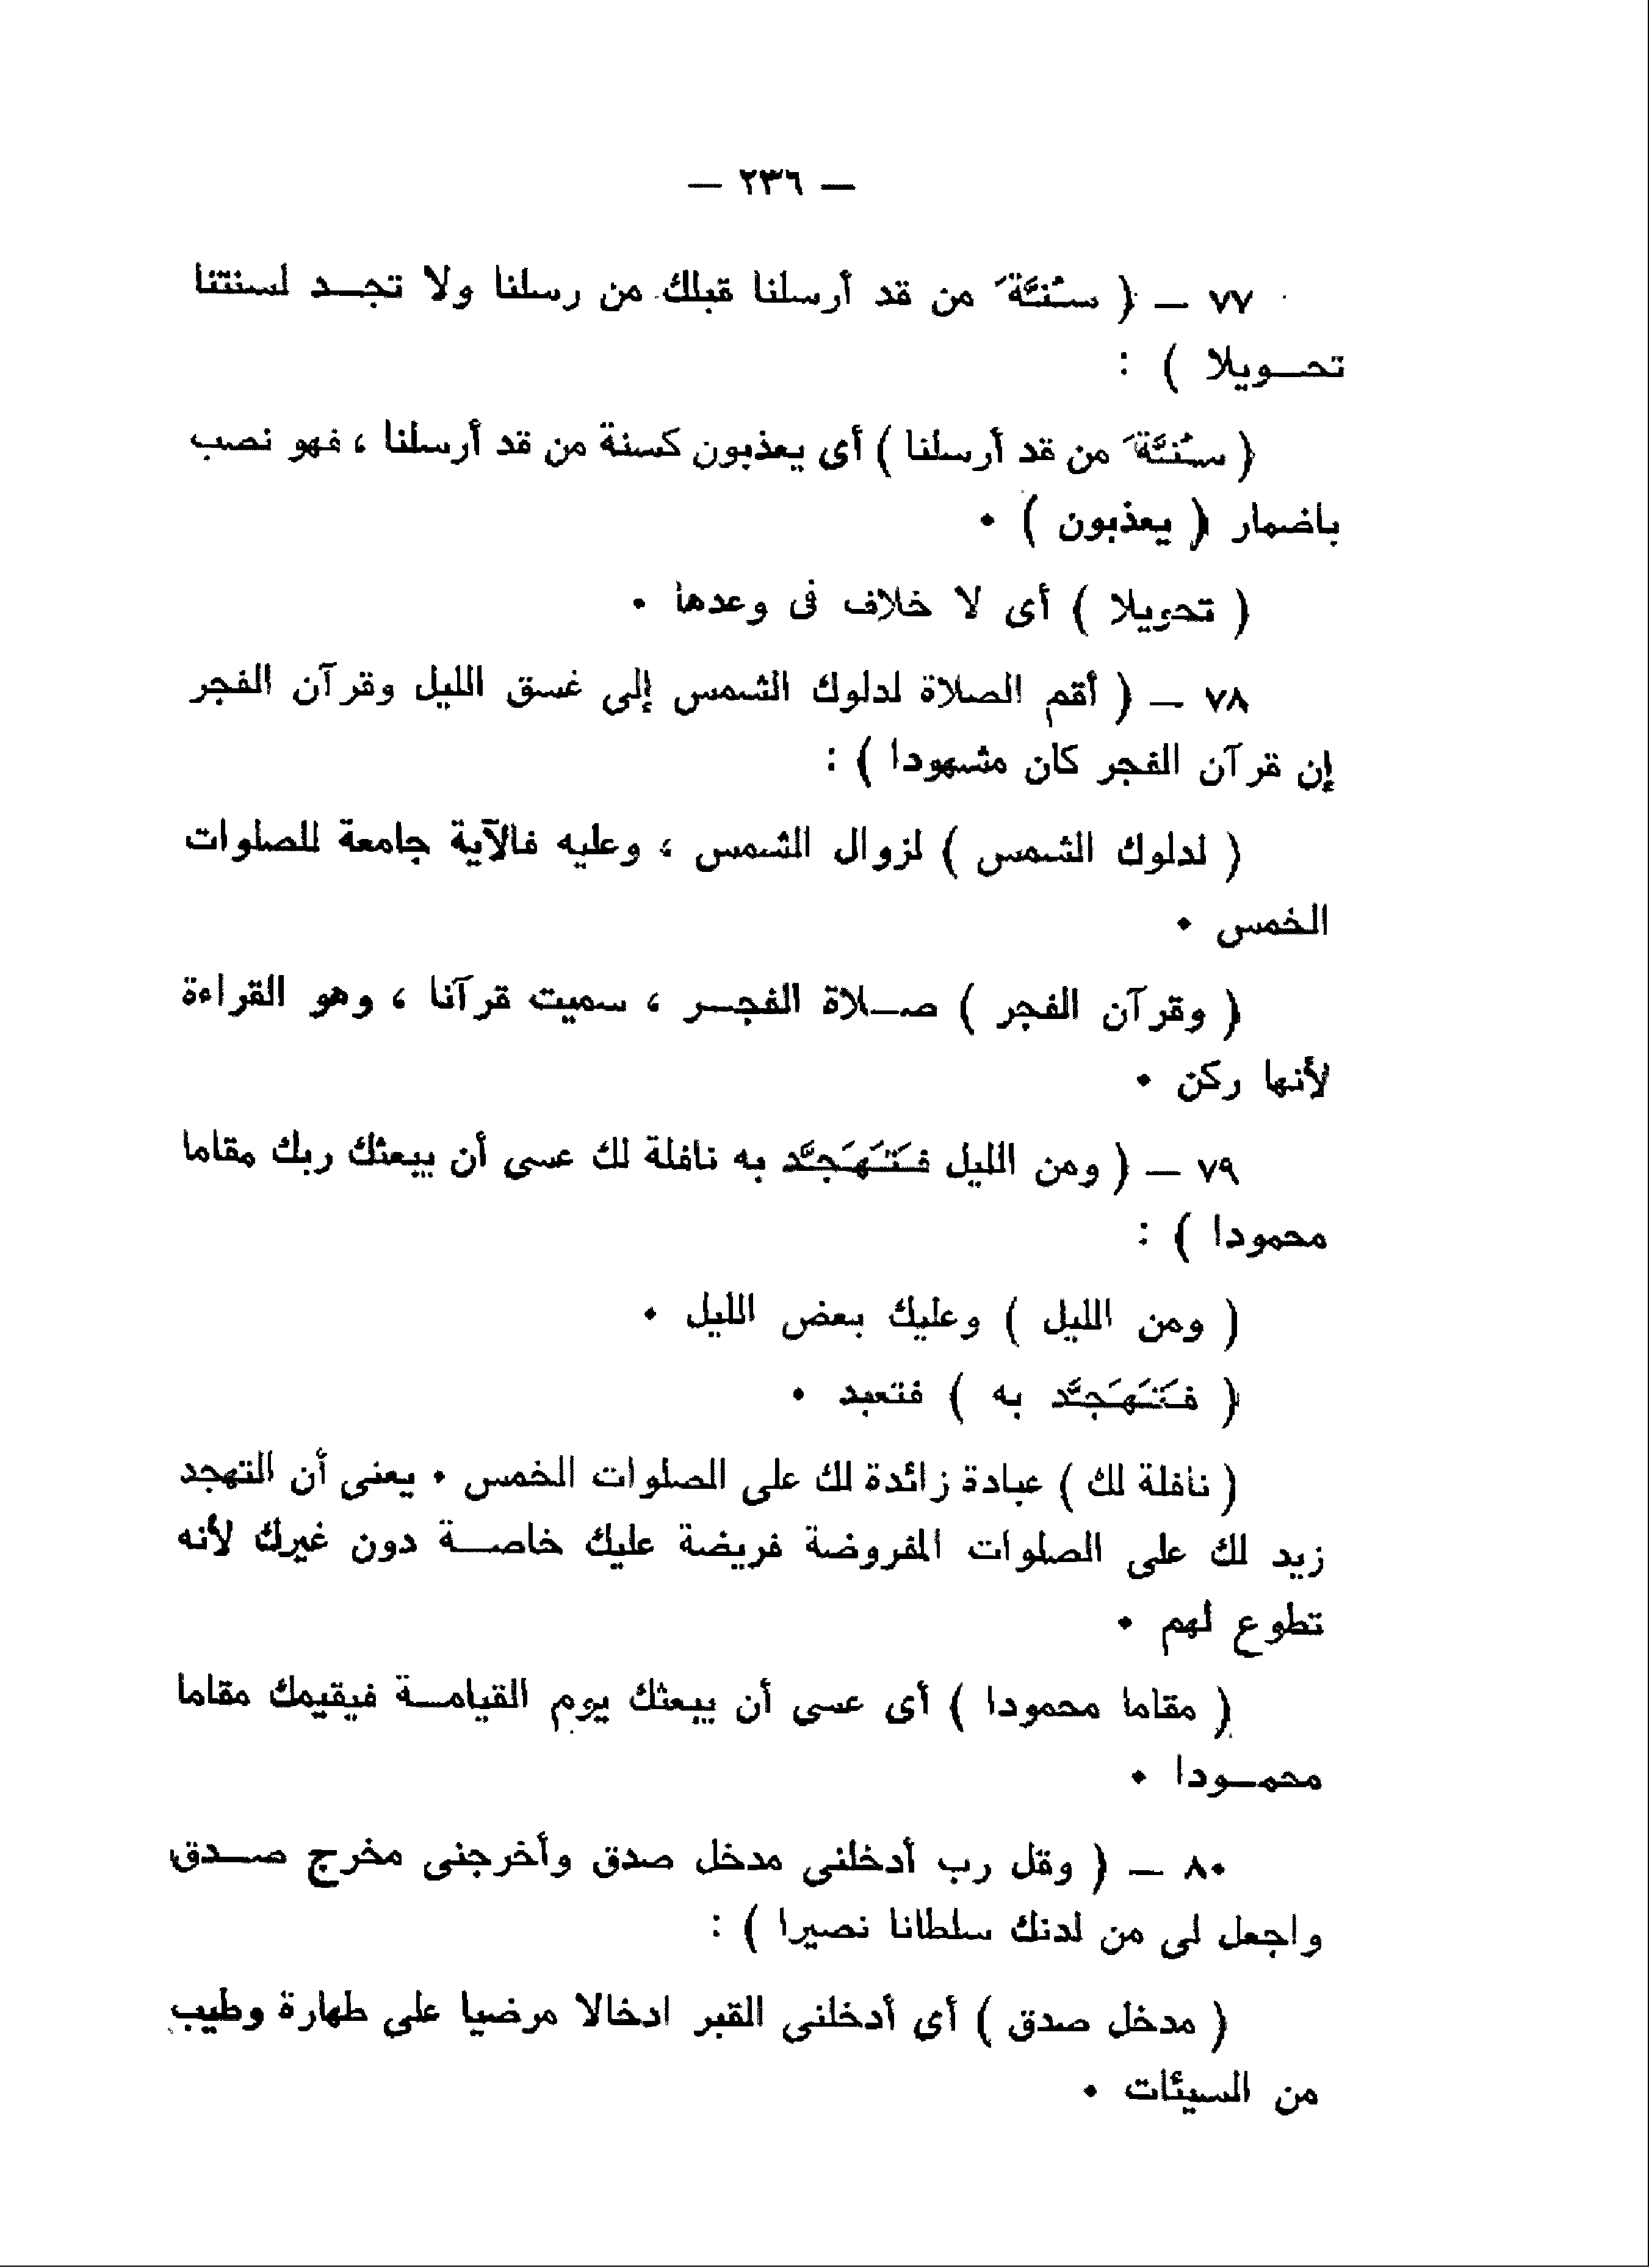 — ٢٣٦ —
٧٧ — ( سُنَّةَ من قد أرسلنا قبلك من رسلنا ولا تجد لسنتنا
تحويلا ) :
( سُنَّةَ من قد أرسلنا ) أى يعذبون كسنة من قد أرسلنا ، فهو نصب
باضمار ( يعذبون ) ٠
( تحويلا ) أى لا خلاف فى وعدها ٠
٧٨ — ( أقم الصلاة لدلوك الشمس إلى غسق الليل وقرآن الفجر
إن قرآن الفجر كان مشهودا ) :
( لدلوك الشمس ) لزوال الشمس ، وعليه فالآية جامعة للصلوات
الخمس ٠
( وقرآن الفجر ) صلاة الفجر ، سميت قرآنا ، وهو القراءة
لأنها ركن ٠
٧٩ — ( ومن الليل فَتَهَجَّد به نافلة لك عسى أن يبعثك ربك مقاما
محمودا ) :
( ومن الليل ) وعليك بعض الليل ٠
( فَتَهَجَّد به ) فتعبد ٠
( نافلة لك ) عبادة زائدة لك على الصلوات الخمس ٠ يعنى أن التهجد
زيد لك على الصلوات المفروضة فريضة عليك خاصة دون غيرك لأنه
تطوع لهم ٠
( مقاما محمودا ) أى عسى أن يبعثك يوم القيامة فيقيمك مقاما
محمودا ٠
٨٠ — ( وقل رب أدخلنى مدخل صدق وأخرجنى مخرج صدق
واجعل لى من لدنك سلطانا نصيرا ) :
( مدخل صدق ) أى أدخلنى القبر ادخالا مرضيا على طهارة وطيب
من السيئات ٠